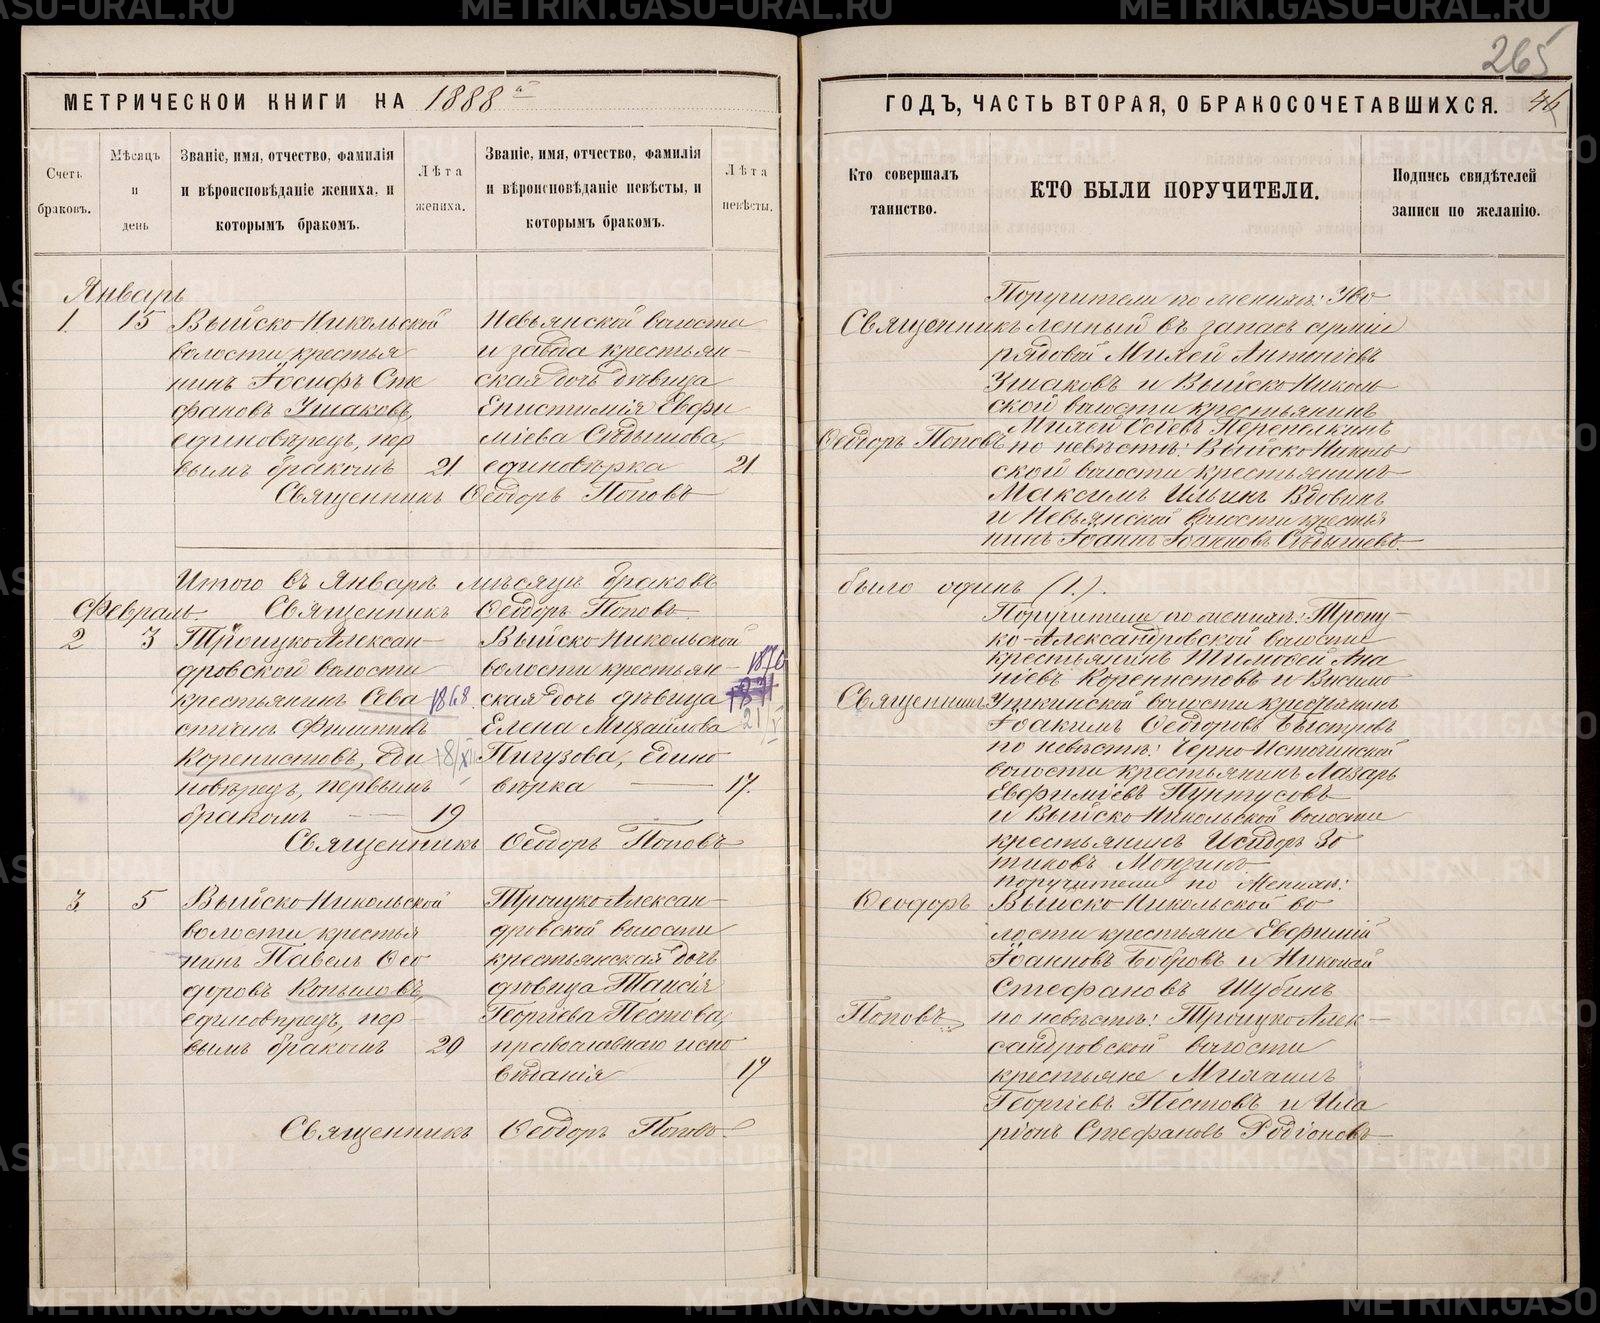 265
МЕТРИЧЕСКОЙ КНИГИ НА 1888 й
Счетъ браковъ.
Мѣсяцъ и день
Званіе, имя, отчество, фамилія
и вѣроисповѣданіе жениха, и
которымъ бракомъ.
Лѣта
жениха.
Званіе, имя, отчество, фамилія
и вѣроисповѣданіе невѣсты, и
которымъ бракомъ.
Лѣта
невѣсты.
Январь
1. 15
Выйско-Никольской
волости крестья
нинъ Іосифъ Сте
фановъ Ушаковъ,
единовѣрецъ, пер
вымъ бракомъ 21.
Невьянской волости
и завода крестьян-
ская дочь дѣвица
Епистимія Евфи
міева Сѣдышова,
единовѣрка 21
Священникъ Ѳеодоръ Поповъ
Итого въ Январѣ мѣсяцѣ браковъ
Февраль. Священникъ Ѳеодоръ Поповъ.
2 3
Троицко Алексан-
дровской волости
крестьянинъ Сева 1868
стіанъ Филиповъ
Коренистовъ, еди
новѣрецъ, первымъ
бракомъ 19
Выйско-Никольской
волости крестьян- 1870
ская дочь дѣвица 1871
Елена Михайлова
Пигузова, едино
вѣрка 17.
Священникъ Ѳеодоръ Поповъ
3. 5
Выйско-Никольской
волости крестья
нинъ Павелъ Ѳео
доровъ Копыловъ,
единовѣрецъ, пер-
вымъ бракомъ 20
Троицко Алексан-
дровской волости
крестьянская дочь
дѣвица Таисія
Георгіева Пестова,
православнаго испо
вѣданія 17
Священникъ Ѳеодоръ Поповъ.
ГОДЪ, ЧАСТЬ ВТОРАЯ, О БРАКОСОЧЕТАВШИХСЯ. 46
Кто совершалъ
таинство.
КТО БЫЛИ ПОРУЧИТЕЛИ.
Подпись свидѣтелей
записи по желанію.
Священникъ
Ѳеодоръ Поповъ
Поручители по женихѣ: Уво
ленный въ запасъ арміи
рядовой Михей Антоніевъ
Ушаковъ и Выйско Николь
ской волости крестьянинъ
Михей Осіевъ Перепелкинъ
по невѣстѣ: Выйско-Николь
ской волости крестьянинъ
Максимъ Ильинъ Вдовинъ
и Невьянской волости крестья
нинъ Іоаннъ Іоанновъ Сѣдышевъ
было одинъ (1.).
Священникъ
Поручители по женихѣ: Троиц-
ко-Александровской волости
крестьянинъ Тимофей Ана
ніевъ Коренистовъ и Висимо
Уткинской волости крестьянинъ
Іоакимъ Ѳеодоровъ Быстровъ
по невѣстѣ: Черно-Источинской
волости крестьянинъ Лазарь
Евфиміевъ Пунтусовъ
и Выйско-Никольской волости
крестьянинъ Исидоръ Зо
тиковъ Мокѣевъ
Ѳеодоръ
Поповъ
поручители по женихѣ:
Выйско-Никольской во
лости крестьяне Евфимій
Іоанновъ Бобровъ и Николай
Стефановъ Шубинъ
по невѣстѣ: Троицко Алек-
сандровской волости
крестьяне Михаилъ
Георгіевъ Пестовъ и Ила
ріонъ Стефановъ Родіоновъ